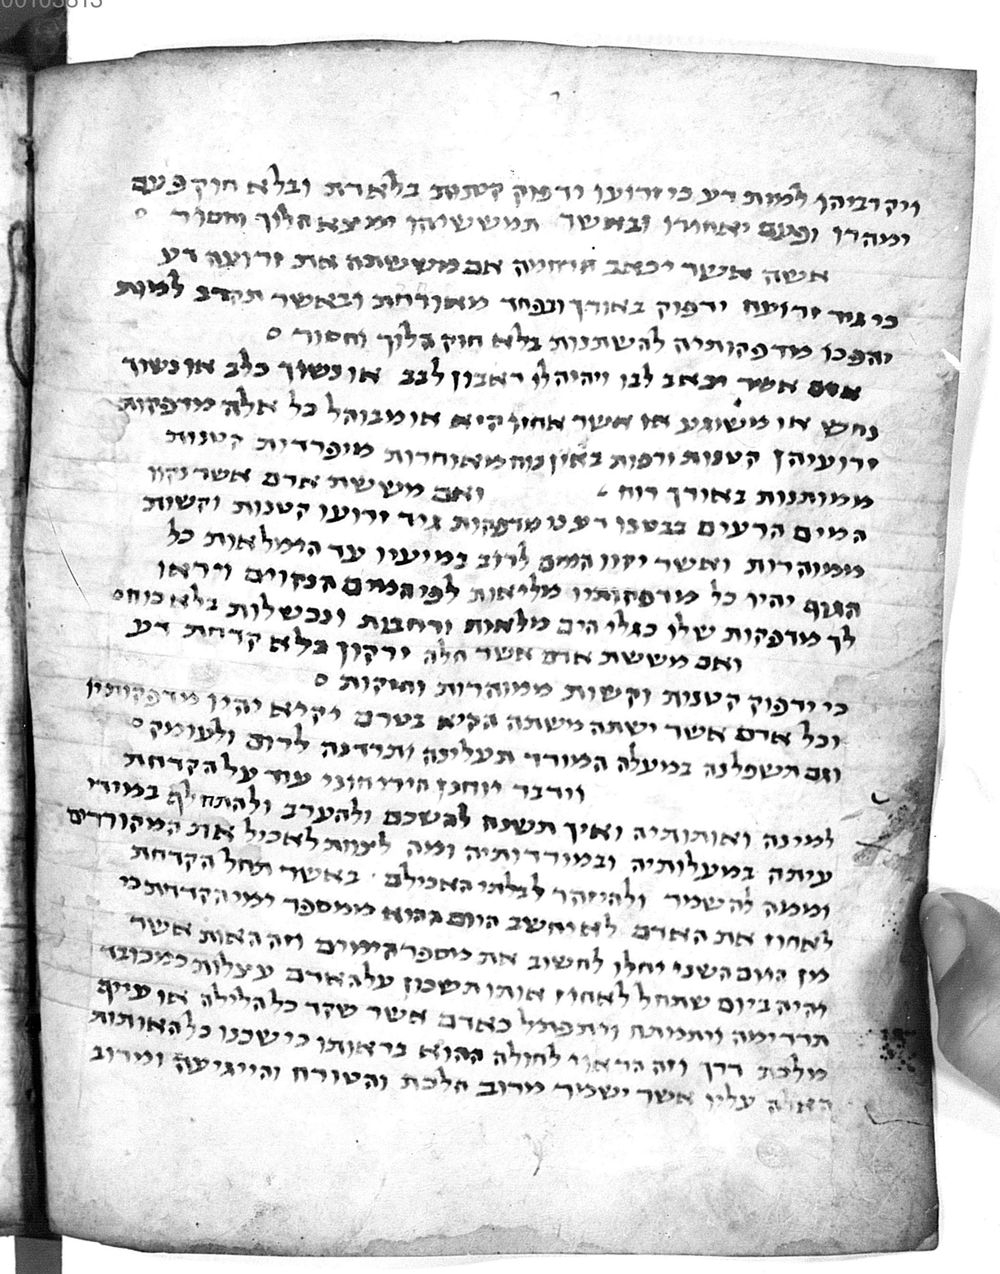 00103813
ויקרביהו למות דע כי זרועו ידפוק קטנות בלאדת ובלא חוק פעם
ימהרו ופעם יאחורו ובאשר תמששיהן ימצא הלוך וחסור
אשה אשר יכאב אם מששתה את זרועה דע
כי גיד זרועה ידפוק באורך ובפחד מאודחת ובאשר תקרב למות
יהפכו מדפקותיה להשתנות בלא חוק הלוך וחסור
אדם אשר יכאב לבו ויהיה לו דאבון לבב או נשוך כלב או נשוך
נחש או משוגע או אשר אחזו קיא או מבוהל כל אלה מדפקות
זרועיהן קטנות ורפות באין כוח מאוחרות מופרדות קטנות
ממותנות באורך רוח ואם מששת אדם אשר נקוו
המים הרעים בבטנו דע כי מדפקות גיד זרועו קטנות וקשות
ממוהרות ואשר יקוו המים לרוב במיעיו עד הימלאות כל
הגוף יהיו כל מדפקותיו מליאות לפי המים הנקוים ויראו
לך מדפקות שלו כגלי הים מלאות ורחבות ונכשלות בלא כוח
ואם מששת אדם אשר חלה ירקון בלא קדחת דע
כי ידפוק קטנית וקשות ממוהרות וחזקות
וכל אדם אשר ישתה משתה הקיא בטרם יקיא יהיו מדפקותיו
וגם תשפלנה במעלה המורד תעלינה ותרדנה לרום ולעומק
וידבר יוחנן הירחוני עוד על הקדחת
למינה ואותותיה ואיך תשנה להשכם ולהערב ולהתחלף במודי
עיתה במעלותיה ובמורדותיה ומה לצוות לאכול את המקודדים
וממה להשמיר ולהיזהר לבלתי האכילם באשר תחל הקדחת
לאחוז את האדם לא יחשב היום ההוא ממספר ימי הקדחת כי
מן היום השני יחלו לחשוב את מספר הימים וזה האות אשר
יהיה ביום שתחל לאחוז אותו תשכון על האדם עצלות כמכובד
תרדימה ויתמתח ויתפתל כאדם אשר שקד כל הלילה או עייף
מלכת דרך וזה הראוי לחולה ההוא בראותו כי שכנו כל האותות
האלה עליו אשר ישמיר מרוב הלכת והטורח והייגיעה ומרוב